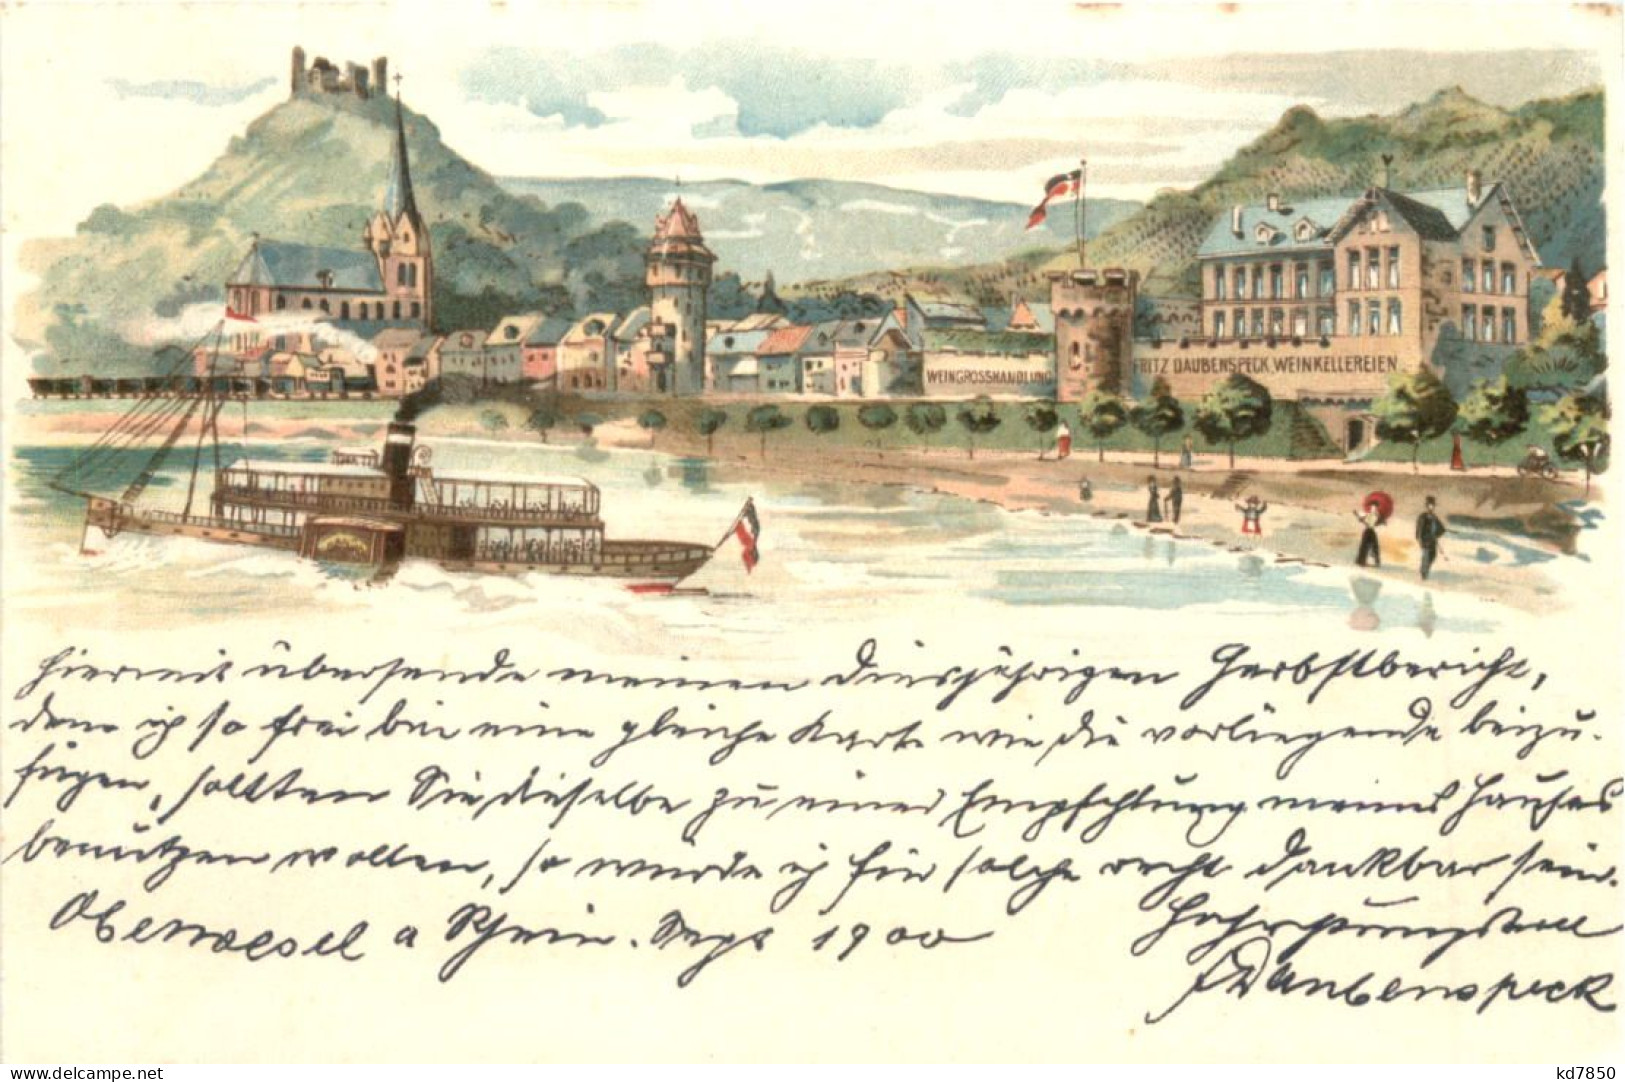 WEINGROSSHANDLUNG
FRITZ DAUBENSPECK WEINKELLEREIEN.
Hiermit übersende meinen diesjährigen Herbstbericht,
dem ich so frei bin eine gleiche Karte wie die vorliegende beizu-
fügen, sollten Sie dieselbe zu einer Empfehlung meines Hauses
benützen wollen, so würde ich für solche recht dankbar sein.
Oberwesel a Rhein. Sept 1900
Hochachtungsvoll
F Daubenspeck
www.delcampe.net
kd7850